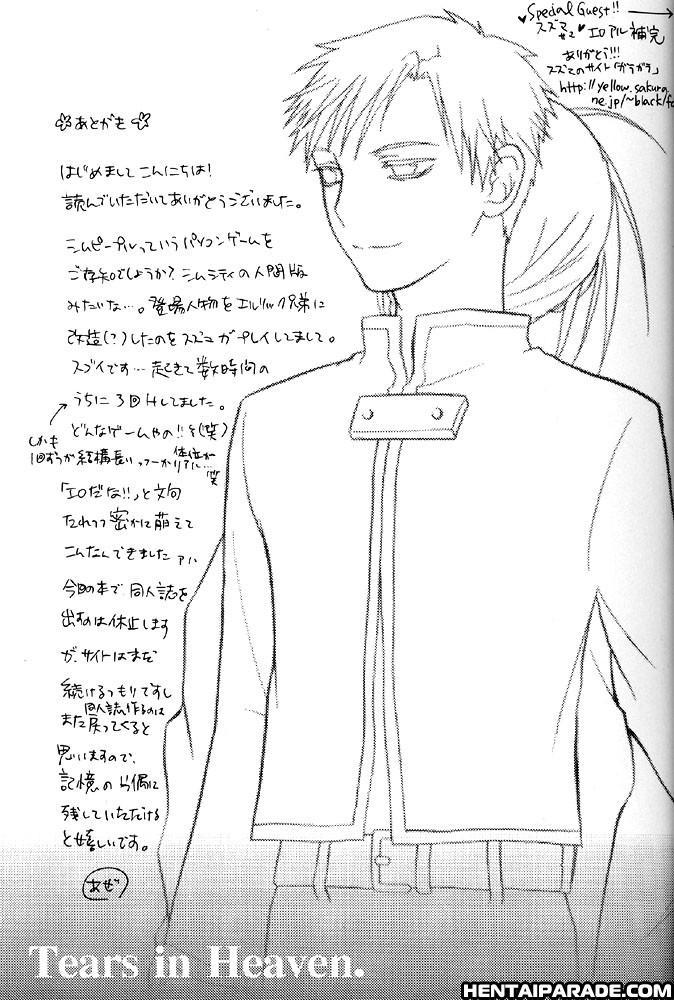 Special Guest!!
スズマ エロアル補完
ありがとう!!!
スズマのサイト「ガラガラ」
http://yellow.sakura.
ne.jp/~black/fo
あとがき
はじめましてこんにちは!
読んでいただいてありがとうございました。
シムピープルっていうパソコンゲームを
ご存知でしょうか?シムシティの人間版
みたいな…。登場人物をエルリック兄弟に
改造(?)したのをスズマがプレイしてまして。
スゴイです…起きて数時間の
うちに3回Hしてました。
どんなゲームやの!!(笑)
しかも
1回ずつが結構長いっつーか体位が
リアル…笑
「エロだな!!」と文句
たれつつ密かに萌えて
こんなんできました
今回の本で同人誌を
出すのは休止します
が、サイトはまだ
続けるつもりですし
同人誌作るのは
また戻ってくると
思いますので、
記憶の片隅に
残していただける
と嬉しいです。
あぜ
Tears in Heaven.
HENTAIPARADE.COM